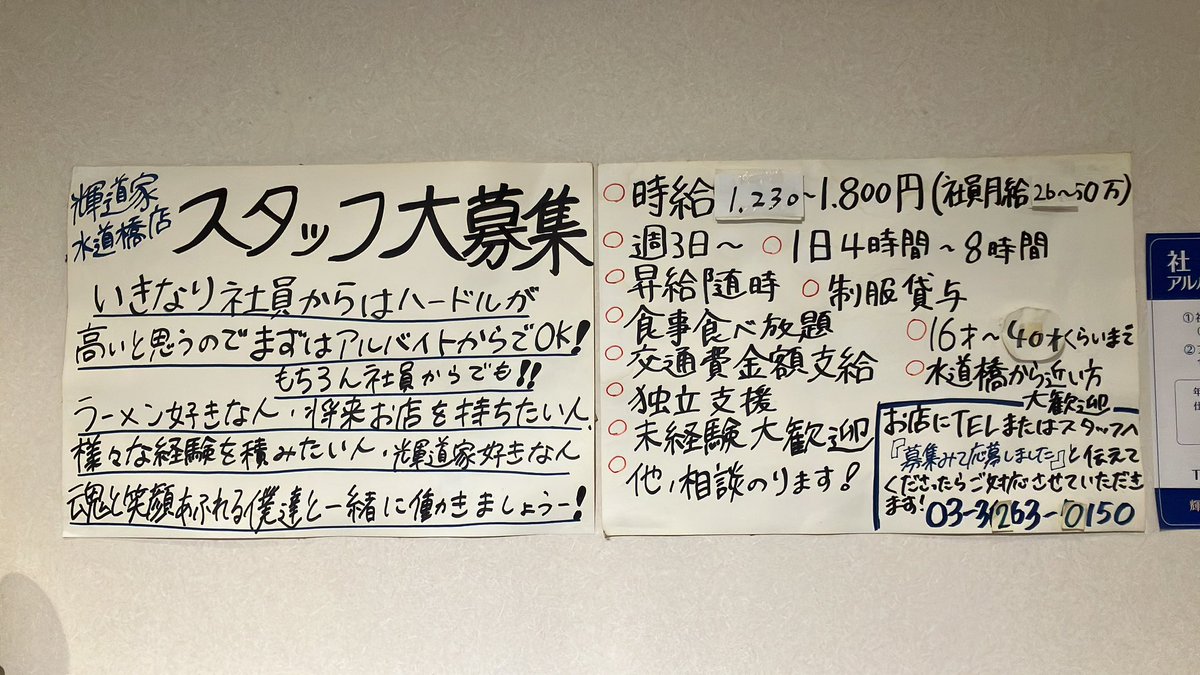 輝道家
水道橋店
スタッフ大募集
いきなり社員からはハードルが
高いと思うのでまずはアルバイトからでOK!
もちろん社員からでも!!
ラーメン好きな人、将来お店を持ちたい人、
様々な経験を積みたい人、輝道家好きな人
魂と笑顔あふれる僕達と一緒に働きましょうー!
○時給 1.230~1.800円(社員月給26~50万)
○週3日~ ○1日4時間~8時間
○昇給随時 ○制服貸与
○食事食べ放題 ○16才~40才くらいまで
○交通費金額支給 ○水道橋から近い方
大歓迎
○独立支援
○未経験大歓迎
○他、相談のります!
お店にTELまたはスタッフへ
『募集みて応募しました』と伝えて
くださったらご対応させていただき
ます!
03-3263-0150
社
アル